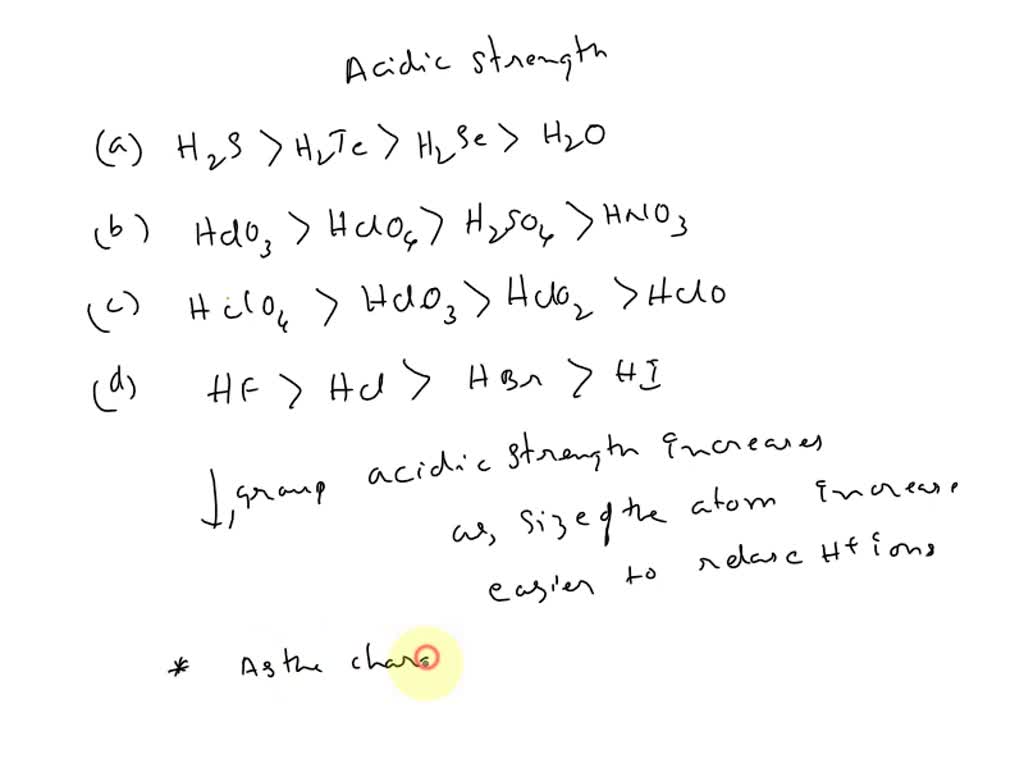 Acidic strength
(a) H2S > H2Te > H2Se > H2O
(b) HClO3 > HClO4 > H2SO4 > HNO3
(c) HClO4 > HClO3 > HClO2 > HClO
(d) HF > HCl > HBr > HI
↓, group acidic strength increases
as, size of the atom increase
easier to relase H+ ions
* As the charg